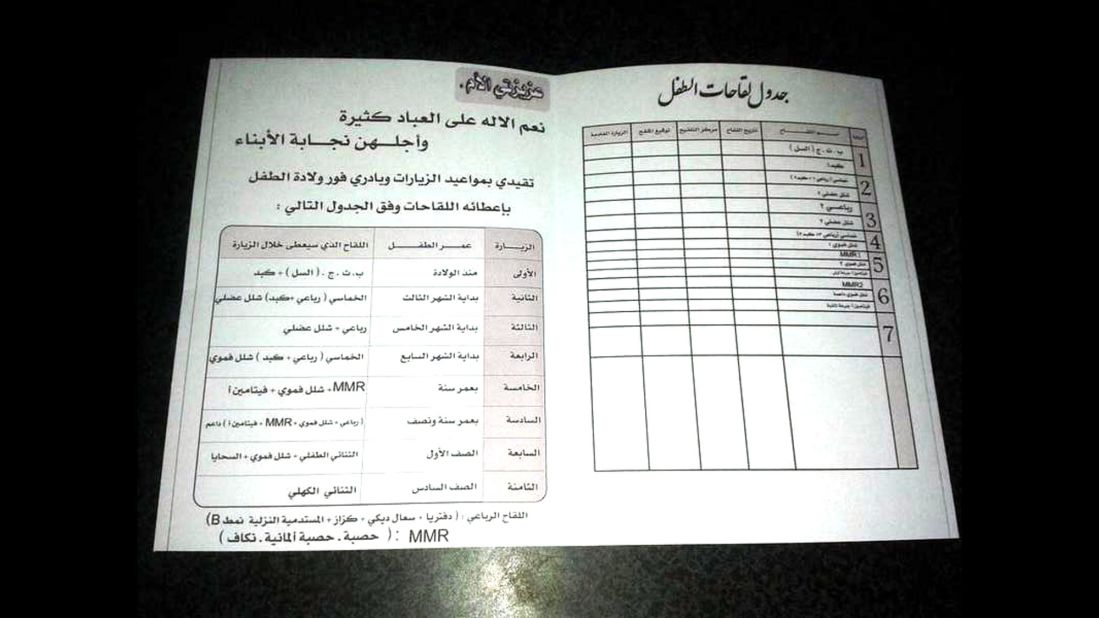 جدول لقاحات الطفل
اسم اللقاح | تاريخ اللقاح | مركز التلقيح | توقيع الملقح | الزيارة القادمة
1 | ب . ت . ج ( السل )
كبد 1
2
شلل عضلي
رباعي ٢
3
شلل عضلي ٢
4
شلل فموي ١
MMR1
5
شلل فموي ٢
MMR2
6
شلل فموي داعمة
7
عزيزتي الأم .
نعم الاله على العباد كثيرة
وأجلـهـن نجـابـة الأبناء
تقيدي بمواعيد الزيارات وبادري فور ولادة الطفل
بإعطائه اللقاحات وفق الجدول التالي :
الزيارة | عمر الطفـــل | اللقاح الذي سيعطى خلال الزيارة
الأولى | منذ الولادة | ب . ت . ج . ( السل ) + كبد
الثانية | بداية الشهر الثالث | الخماسي ( رباعي +كبد) شلل عضلي
الثالثة | بداية الشهر الخامس | رباعي + شلل عضلي
الرابعة | بداية الشهر السابع | الخماسي ( رباعي + كبد ) شلل فموي
الخامسة | بعمر سنة | MMR+ شلل فموي + فيتامين أ
السادسة | بعمر سنة ونصف | ( رباعي + شلل فموي + MMR + فيتامين أ ) داعم
السابعة | الصف الأول | الثنائي الطفلي + شلل فموي + السحايا
الثامنة | الصف السادس | الثنائي الكهلي
اللقاح الرباعي : ( دفتريا + سعال ديكي + كزاز + المستدمية النزلية نمط B)
MMR : ( حصبة . حصبة ألمانية . نكاف )